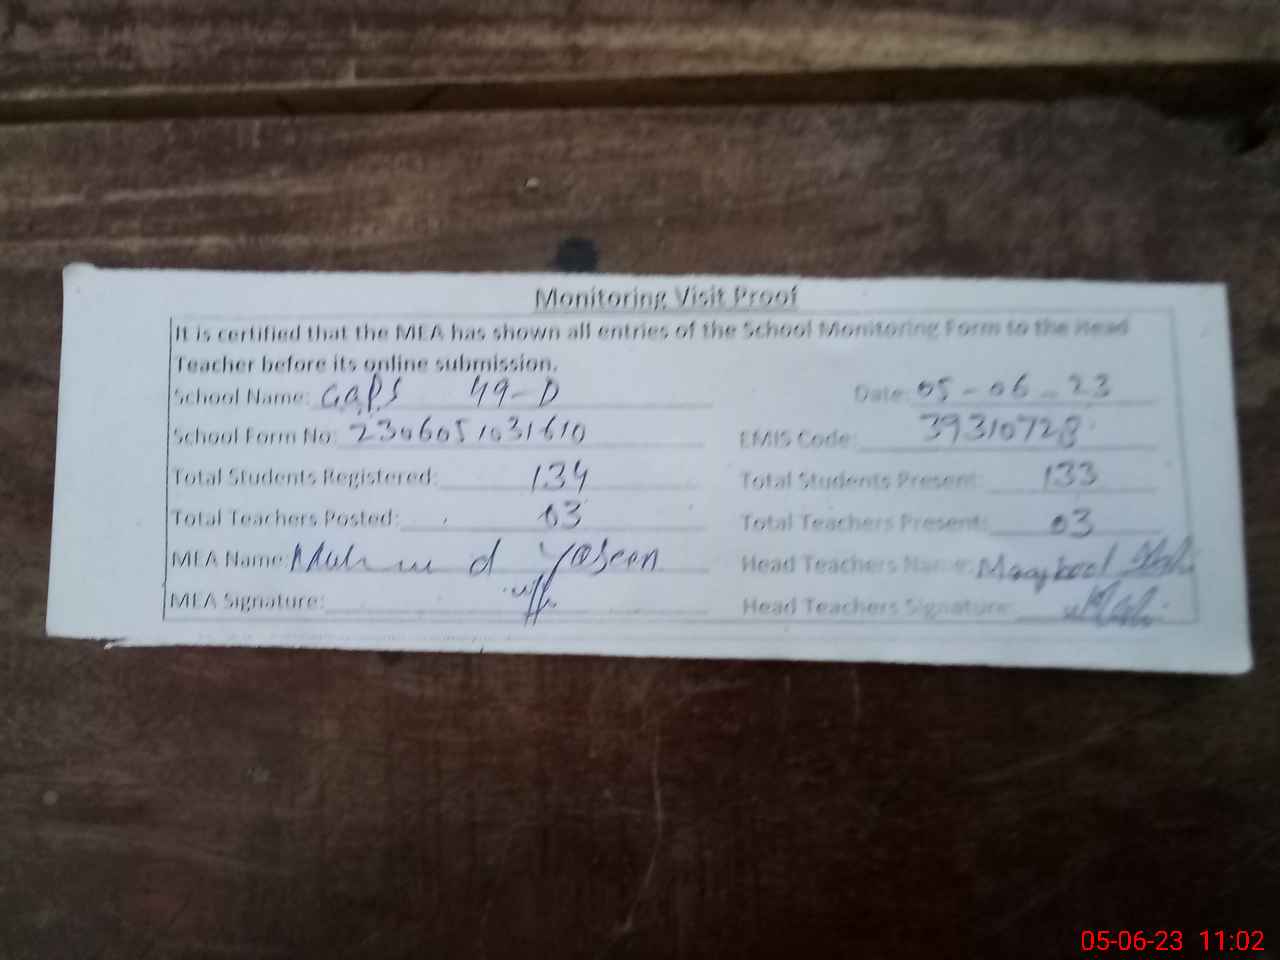 Monitoring Visit Proof
It is certified that the MEA has shown all entries of the School Monitoring Form to the Head
Teacher before its online submission.
School Name: GGPS 49-D Date: 05-06-23
School Form No: 2306051031610 EMIS Code: 39310728
Total Students Registered: 134 Total Students Present: 133
Total Teachers Posted: 03 Total Teachers Present: 03
MEA Name: Yaseen Head Teachers Name:
MEA Signature: Head Teachers Signature:
05-06-23 11:02